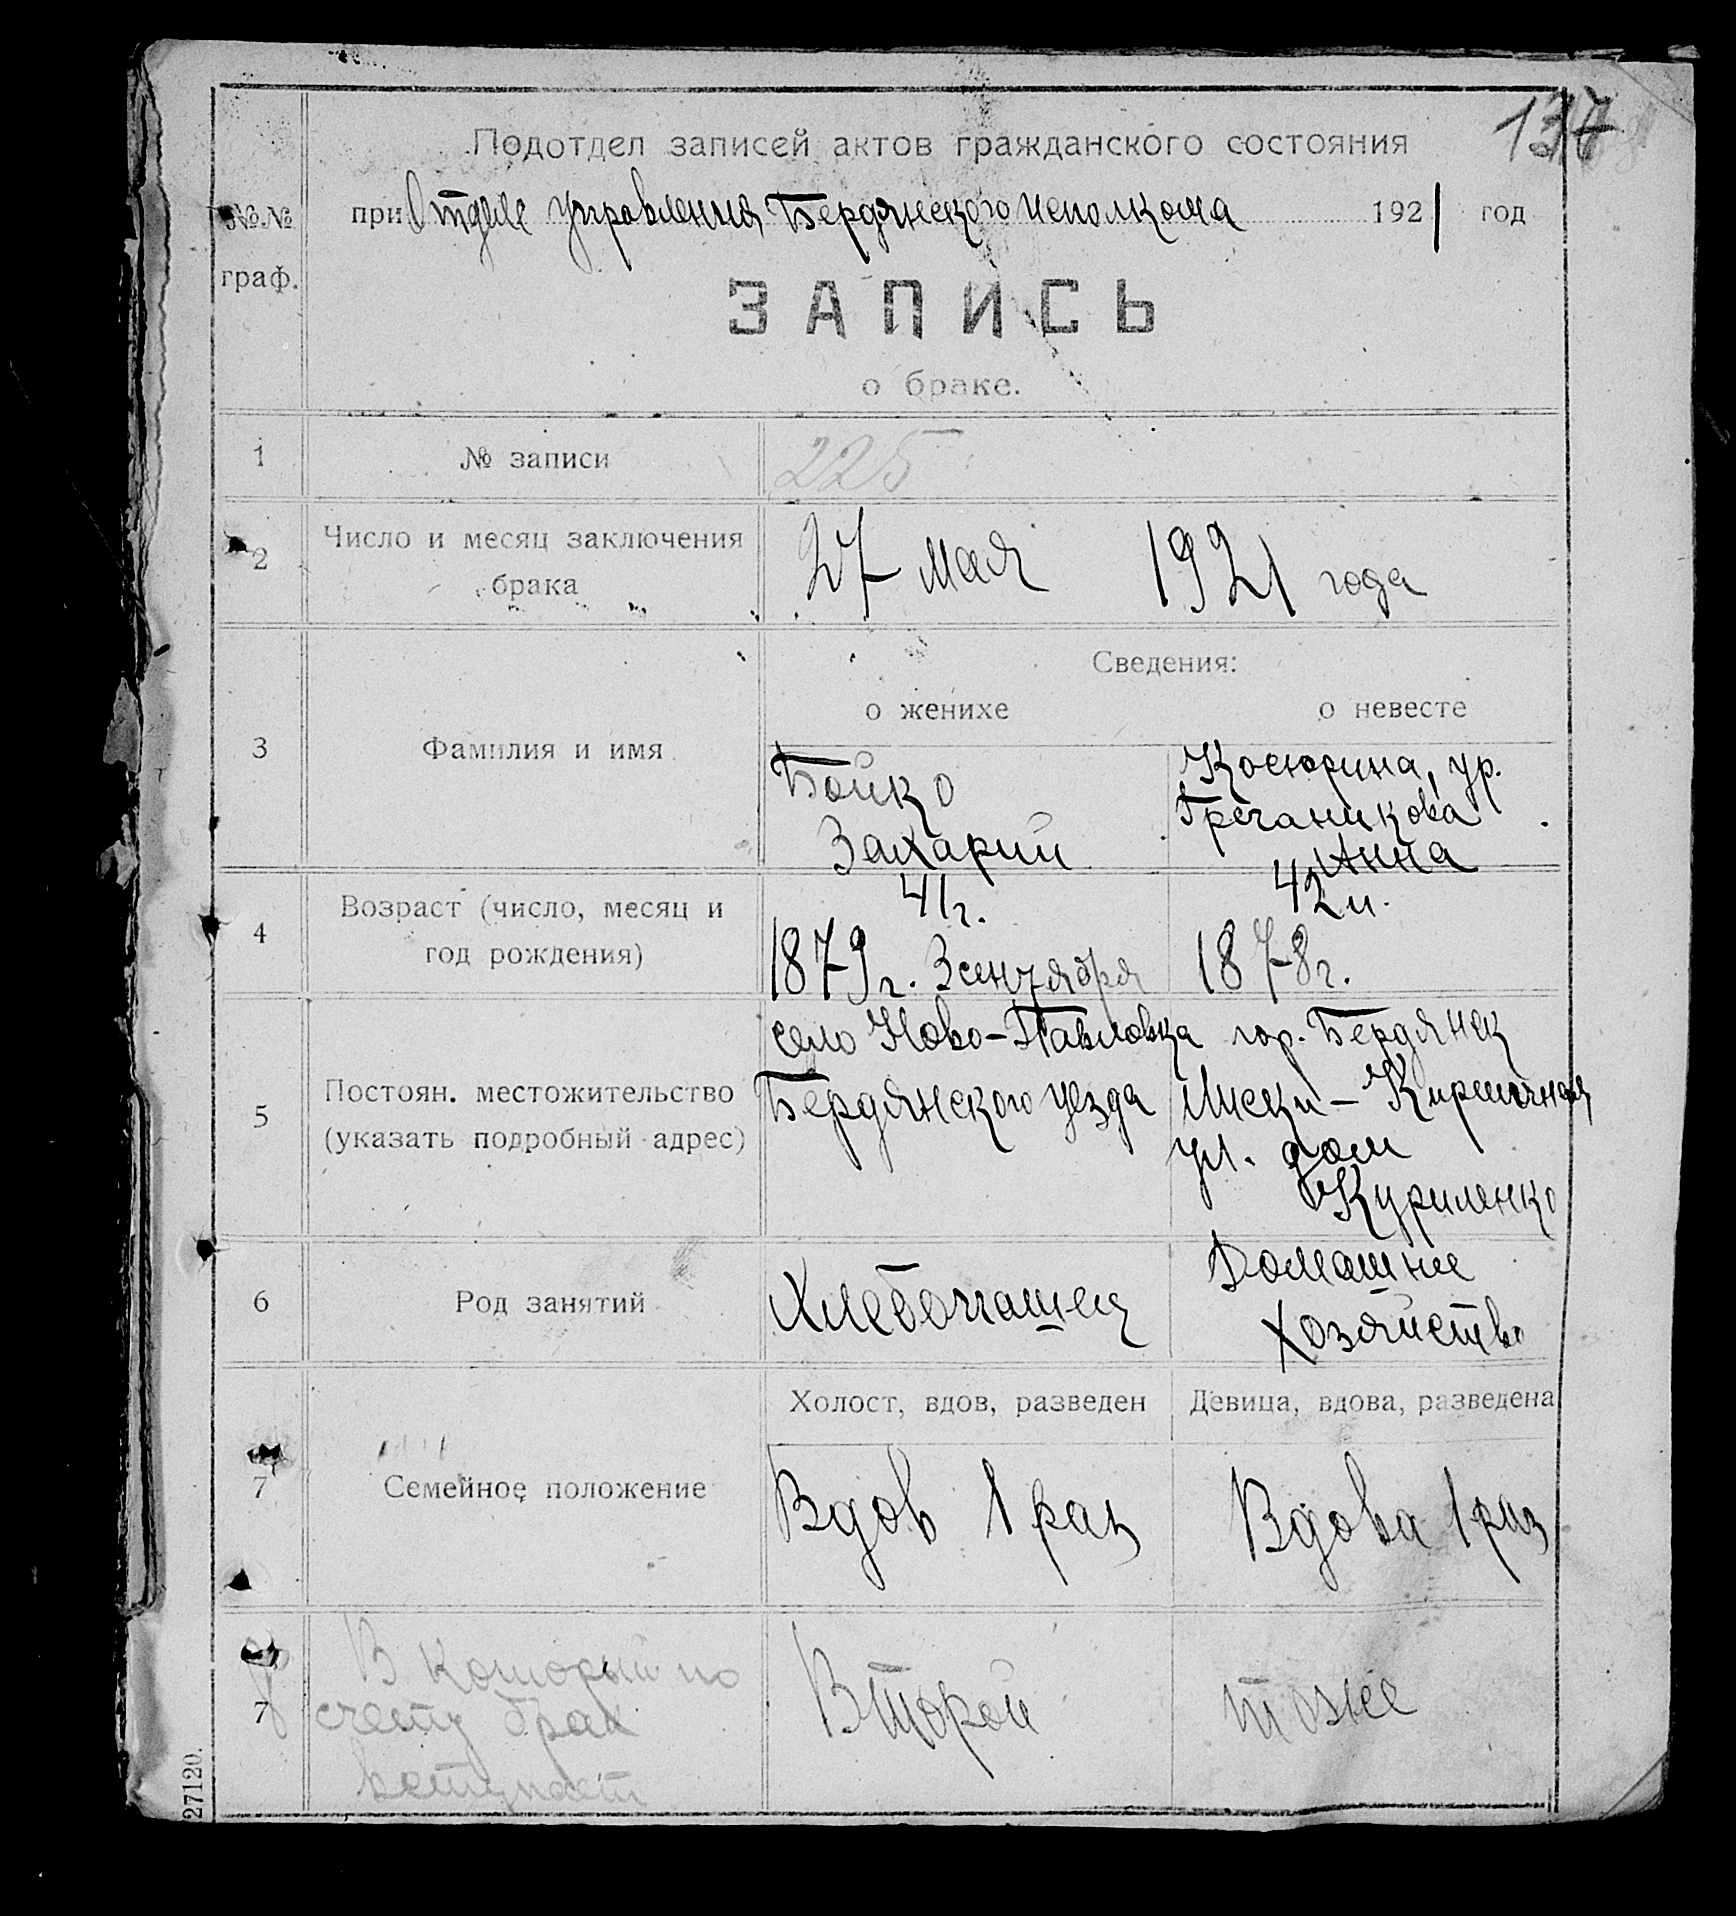 137
Подотдел записей актов гражданского состояния
№№ граф.
при Отделе управления Бердянского исполкома 1921 год
ЗАПИСЬ
о браке.
1 № записи 225
2 Число и месяц заключения брака
27 мая 1921 года
Сведения:
о женихе о невесте
3 Фамилия и имя
Бойко
Захарий
Косюрина, ур.
Гречаникова
Анна
4 Возраст (число, месяц и год рождения)
41 г.
1879 г. 3 сентября
42 л.
1878 г.
5 Постоян. местожительство
(указать подробный адрес)
село Ново-Павловка
Бердянского уезда
гор. Бердянск
Лиски - Кирпичная
ул. дом
Куриленко
6 Род занятий
Хлебопашец
Домашнее
хозяйство
Холост, вдов, разведен Девица, вдова, разведена
7 Семейное положение
Вдов 1 раз
Вдова 1 раз
7 В который по
счету брак
вступает
Второй
тоже
27120.